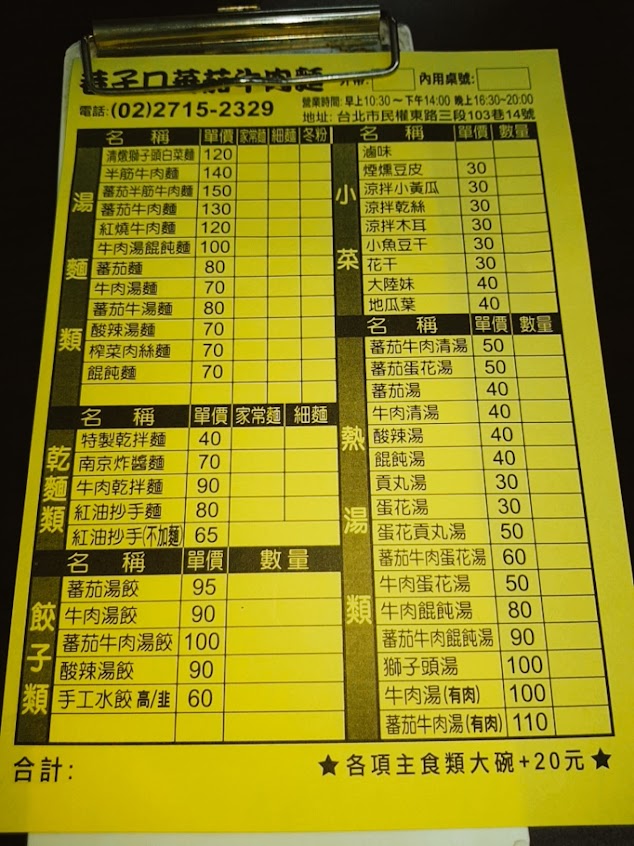 巷子口蕃茄牛肉麵 外帶: 內用桌號:
電話:(02)2715-2329
營業時間: 早上10:30～下午14:00 晚上16:30~20:00
地址: 台北市民權東路三段103巷14號
湯麵類
名稱 單價 家常麵 細麵 冬粉
清燉獅子頭白菜麵 120
半筋牛肉麵 140
蕃茄半筋牛肉麵 150
蕃茄牛肉麵 130
紅燒牛肉麵 120
牛肉湯餛飩麵 100
蕃茄麵 80
牛肉湯麵 70
蕃茄牛湯麵 80
酸辣湯麵 70
榨菜肉絲麵 70
餛飩麵 70
乾麵類
名稱 單價 家常麵 細麵
特製乾拌麵 40
南京炸醬麵 70
牛肉乾拌麵 90
紅油抄手麵 80
紅油抄手(不加麵) 65
餃子類
名稱 單價 數量
蕃茄湯餃 95
牛肉湯餃 90
蕃茄牛肉湯餃 100
酸辣湯餃 90
手工水餃 高/韭 60
小菜
名稱 單價 數量
滷味
煙燻豆皮 30
涼拌小黃瓜 30
涼拌乾絲 30
涼拌木耳 30
小魚豆干 30
花干 30
大陸妹 40
地瓜葉 40
熱湯類
名稱 單價 數量
蕃茄牛肉清湯 50
蕃茄蛋花湯 50
蕃茄湯 40
牛肉清湯 40
酸辣湯 40
餛飩湯 40
貢丸湯 30
蛋花湯 30
蛋花貢丸湯 50
蕃茄牛肉蛋花湯 60
牛肉蛋花湯 50
牛肉餛飩湯 80
蕃茄牛肉餛飩湯 90
獅子頭湯 100
牛肉湯(有肉) 100
蕃茄牛肉湯(有肉) 110
合計:
★各項主食類大碗+20元★